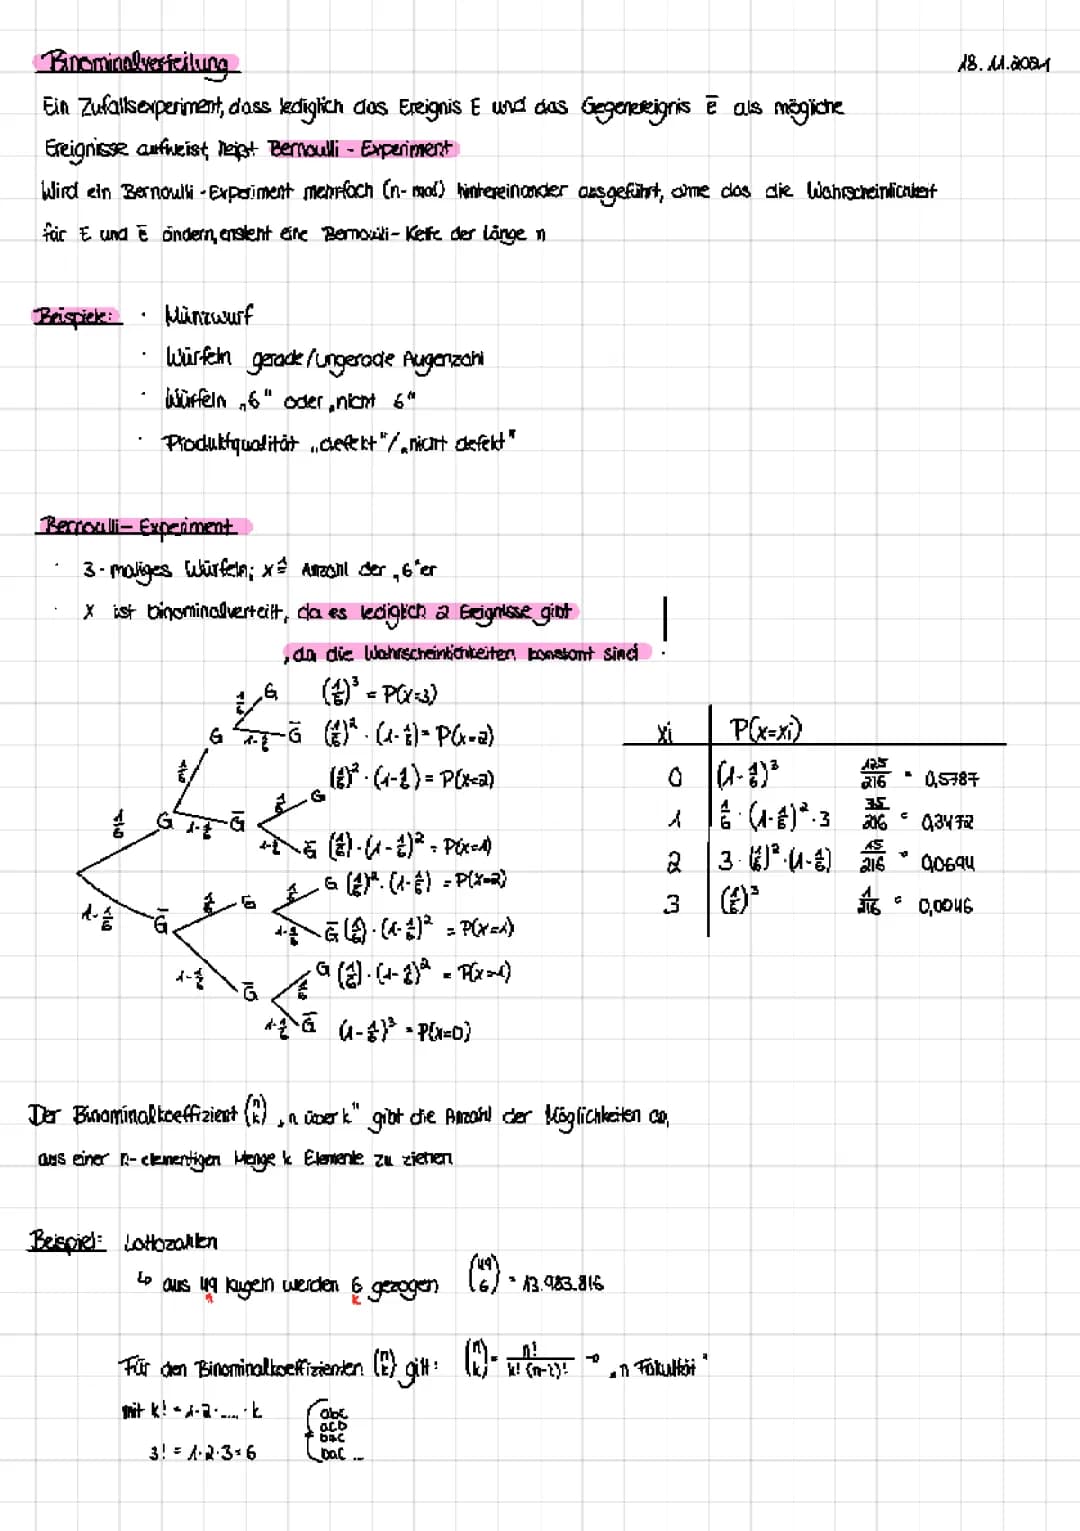 Binominalverteilung
18.11.2021
Ein Zufallsexperiment, dass lediglich das Ereignis E und das Gegenereignis E̅ als mögliche
Ereignisse aufweist, heißt Bernoulli - Experiment
Wird ein Bernoulli - Experiment mehrfach (n- mal) hintereinander ausgeführt, ohne das die Wahrscheinlichkeit
für E und E̅ ändern, ensteht eine Bernoulli - Kette der Länge n
Beispiele: · Münzwurf
· Würfeln gerade / ungerade Augenzahl
· Würfeln „6" oder „nicht 6"
· Produktqualität „defekt" / „nicht defekt"
Bernoulli - Experiment
· 3 - maliges Würfeln; x ≙ Anzahl der „6"er
· X ist binominalverteilt, da es lediglich 2 Ereignisse gibt
, da die Wahrscheinlichkeiten konstant sind
1/6 G (1/6)³ = P(X=3)
G 1-1/6 G̅ (1/6)² · (1-1/6) = P(X=2)
1/6 (1/6)² · (1-1/6) = P(X=2)
1/6 G 1-1/6 G̅ 1/6 G
1-1/6 G̅ (1/6) · (1-1/6)² = P(X=1)
1/6 G 1/6 G (1/6)² · (1-1/6) = P(X=2)
1-1/6 G̅ 1-1/6 G̅ (1/6) · (1-1/6)² = P(X=1)
1-1/6 G̅ 1/6 G (1/6) · (1-1/6)² = P(X=1)
1-1/6 G̅ (1-1/6)³ = P(X=0)
xi P(x=xi)
0 (1-1/6)³ 125/216 = 0,5787
1 1/6 · (1-1/6)² · 3 35/216 = 0,3472
2 3 · (1/6)² · (1-1/6) 15/216 = 0,0694
3 (1/6)³ 1/216 = 0,0046
Der Binominalkoeffizient (n k) „n über k" gibt die Anzahl der Möglichkeiten an,
aus einer n- elementigen Menge k Elemente zu ziehen
Beispiel: Lottozahlen
↳ aus 49 Kugeln werden 6 gezogen (49 6) = 13.983.816
n k
Für den Binominalkoeffizienten (n k) gilt: (n k) = n!/k! (n-k)! → „n Fakultät"
mit k! = 1·2·.....·k
3! = 1·2·3=6
abc
acb
bac
bac ...